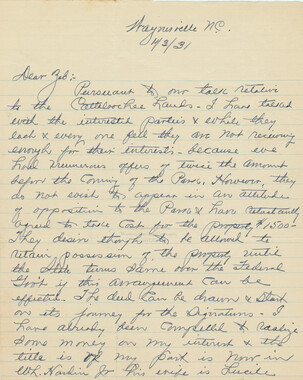 Waynesville N.C.
4/3/31
Dear Zeb:-
Pursuant to our talk relative
to the Cattaloochee Lands - I have talked
with the interested parties & while they
each & every one feel they are not receiving
enough for their interests - because we
had numerous offers of twice the amount
before the coming of the Park. However, they
do not wish to appear in an attitude
of opposition to the Park & have reluctantly
agreed to take cash for the property $1500-
They desire though to be allowed to
retain possession of the property until
the State turns same over to the Federal
Govt if this arrangement can be
effected. The deed can be drawn & start
on its journey for the signatures. I
have already been compelled to realize
some money on my interest & the
title is of my part is now in
his wife is Lucile